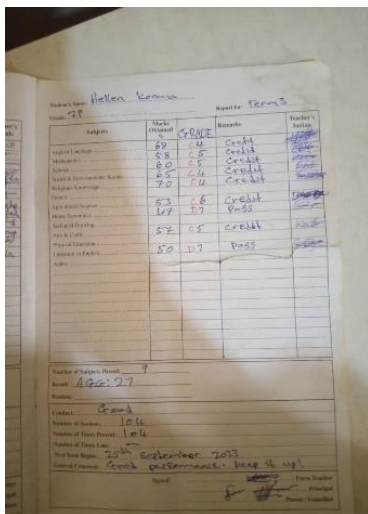 Student's Name: Hellen Korma
Grade: 7B Report for: Term 3
Subjects Marks Obtained GRADE Remarks Teacher's Initials
English Language 68 C4 Credit
Mathematics 58 C5 Credit
Science 60 C5 Credit
Social & Environmental Studies 65 C4 Credit
Religious Knowledge 70 C4 Credit
French
Agricultural Science 53 C6 Credit
Home Economics 47 D7 Pass
Technical Drawing
Arts & Crafts 57 C5 Credit
Physical Education
Literature in English 50 D7 Pass
Arabic
Number of Subjects Passed: 9
Result: AGG: 27
Position:
Conduct: Good
Number of Sessions: 104
Number of Times Present: 104
Number of Times Late: —
Next Term Begins: 25th September 2023
General Comment: Good performance. keep it up!
Signed: Form Teacher
Principal
Parent / Guardian